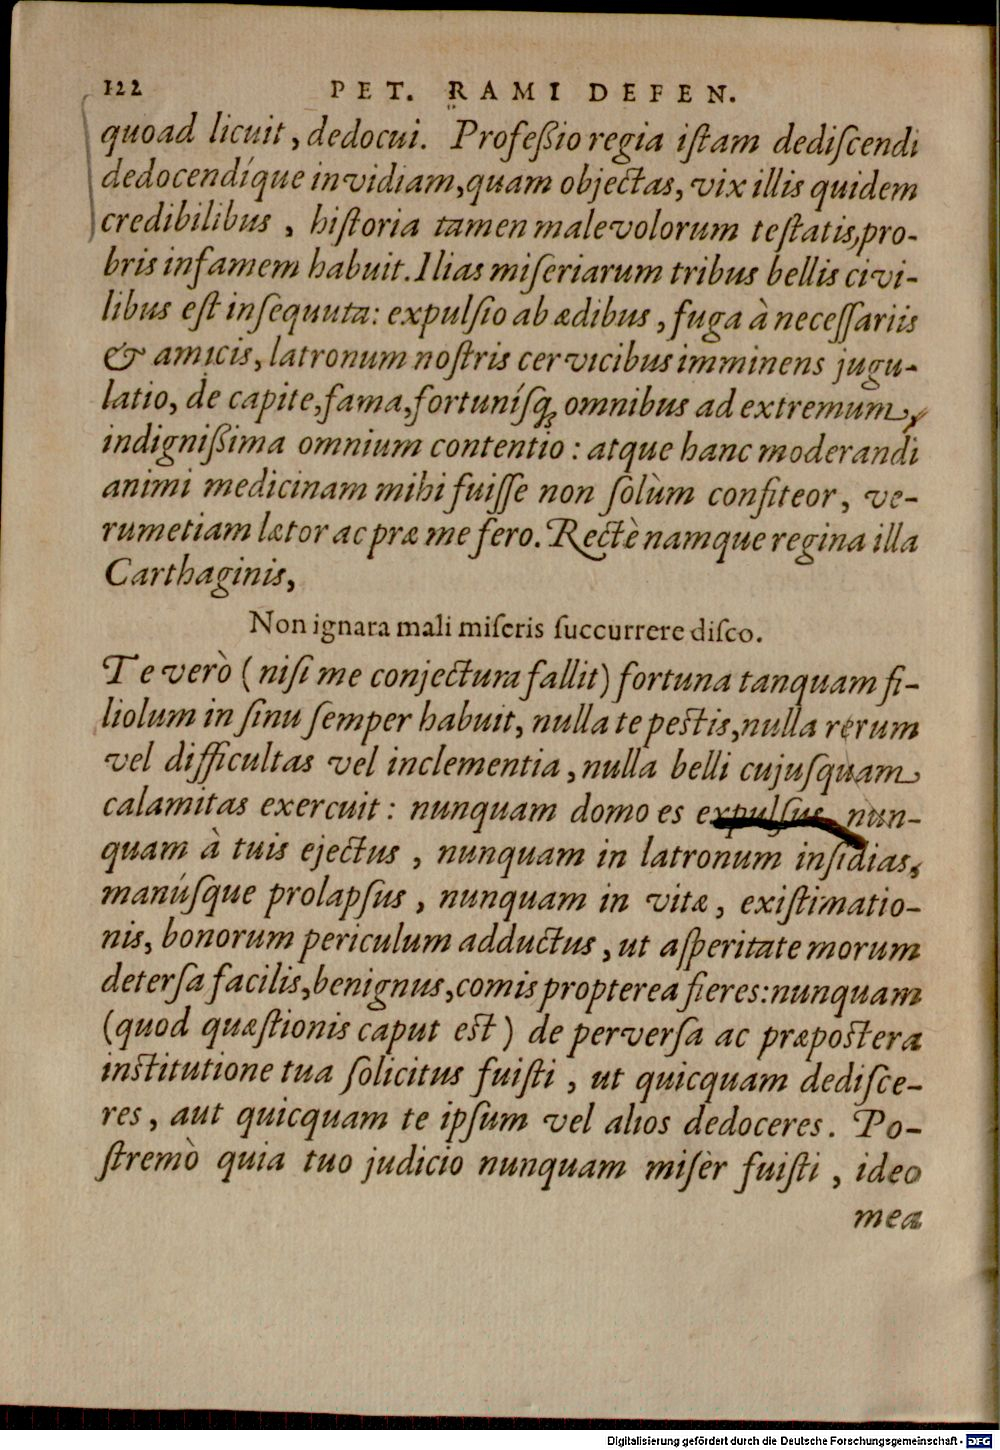 122 PET. RAMI DEFEN.
quoad licuit, dedocui. Profeßio regia iſtam dediſcendi
dedocendíque invidiam, quam objectas, vix illis quidem
credibilibus, hiſtoria tamen malevolorum teſtatis, pro-
bris infamem habuit. Ilias miſeriarum tribus bellis civi-
libus eſt inſequuta: expulſio ab ædibus, fuga à neceſſariis
& amicis, latronum noſtris cervicibus imminens jugu-
latio, de capite, fama, fortuníſq; omnibus ad extremum,
indignißima omnium contentio: atque hanc moderandi
animi medicinam mihi fuiſſe non ſolùm confiteor, ve-
rumetiam lætor ac præ me fero. Rectè namque regina illa
Carthaginis,
Non ignara mali miſeris ſuccurrere diſco.
Te verò (niſi me conjectura fallit) fortuna tanquam fi-
liolum in ſinu ſemper habuit, nulla te peſtis, nulla rerum
vel difficultas vel inclementia, nulla belli cujuſquam
calamitas exercuit: nunquam domo es expulſus, nun-
quam à tuis ejectus, nunquam in latronum inſidias,
manúſque prolapſus, nunquam in vitæ, exiſtimatio-
nis, bonorum periculum adductus, ut aſperitate morum
deterſa facilis, benignus, comis propterea fieres: nunquam
(quod quæſtionis caput eſt) de perverſa ac præpoſtera
inſtitutione tua ſolicitus fuiſti, ut quicquam dediſce-
res, aut quicquam te ipſum vel alios dedoceres. Po-
ſtremò quia tuo judicio nunquam miſer fuiſti, ideo
mea
Digitalisierung gefördert durch die Deutsche Forschungsgemeinschaft - DFG